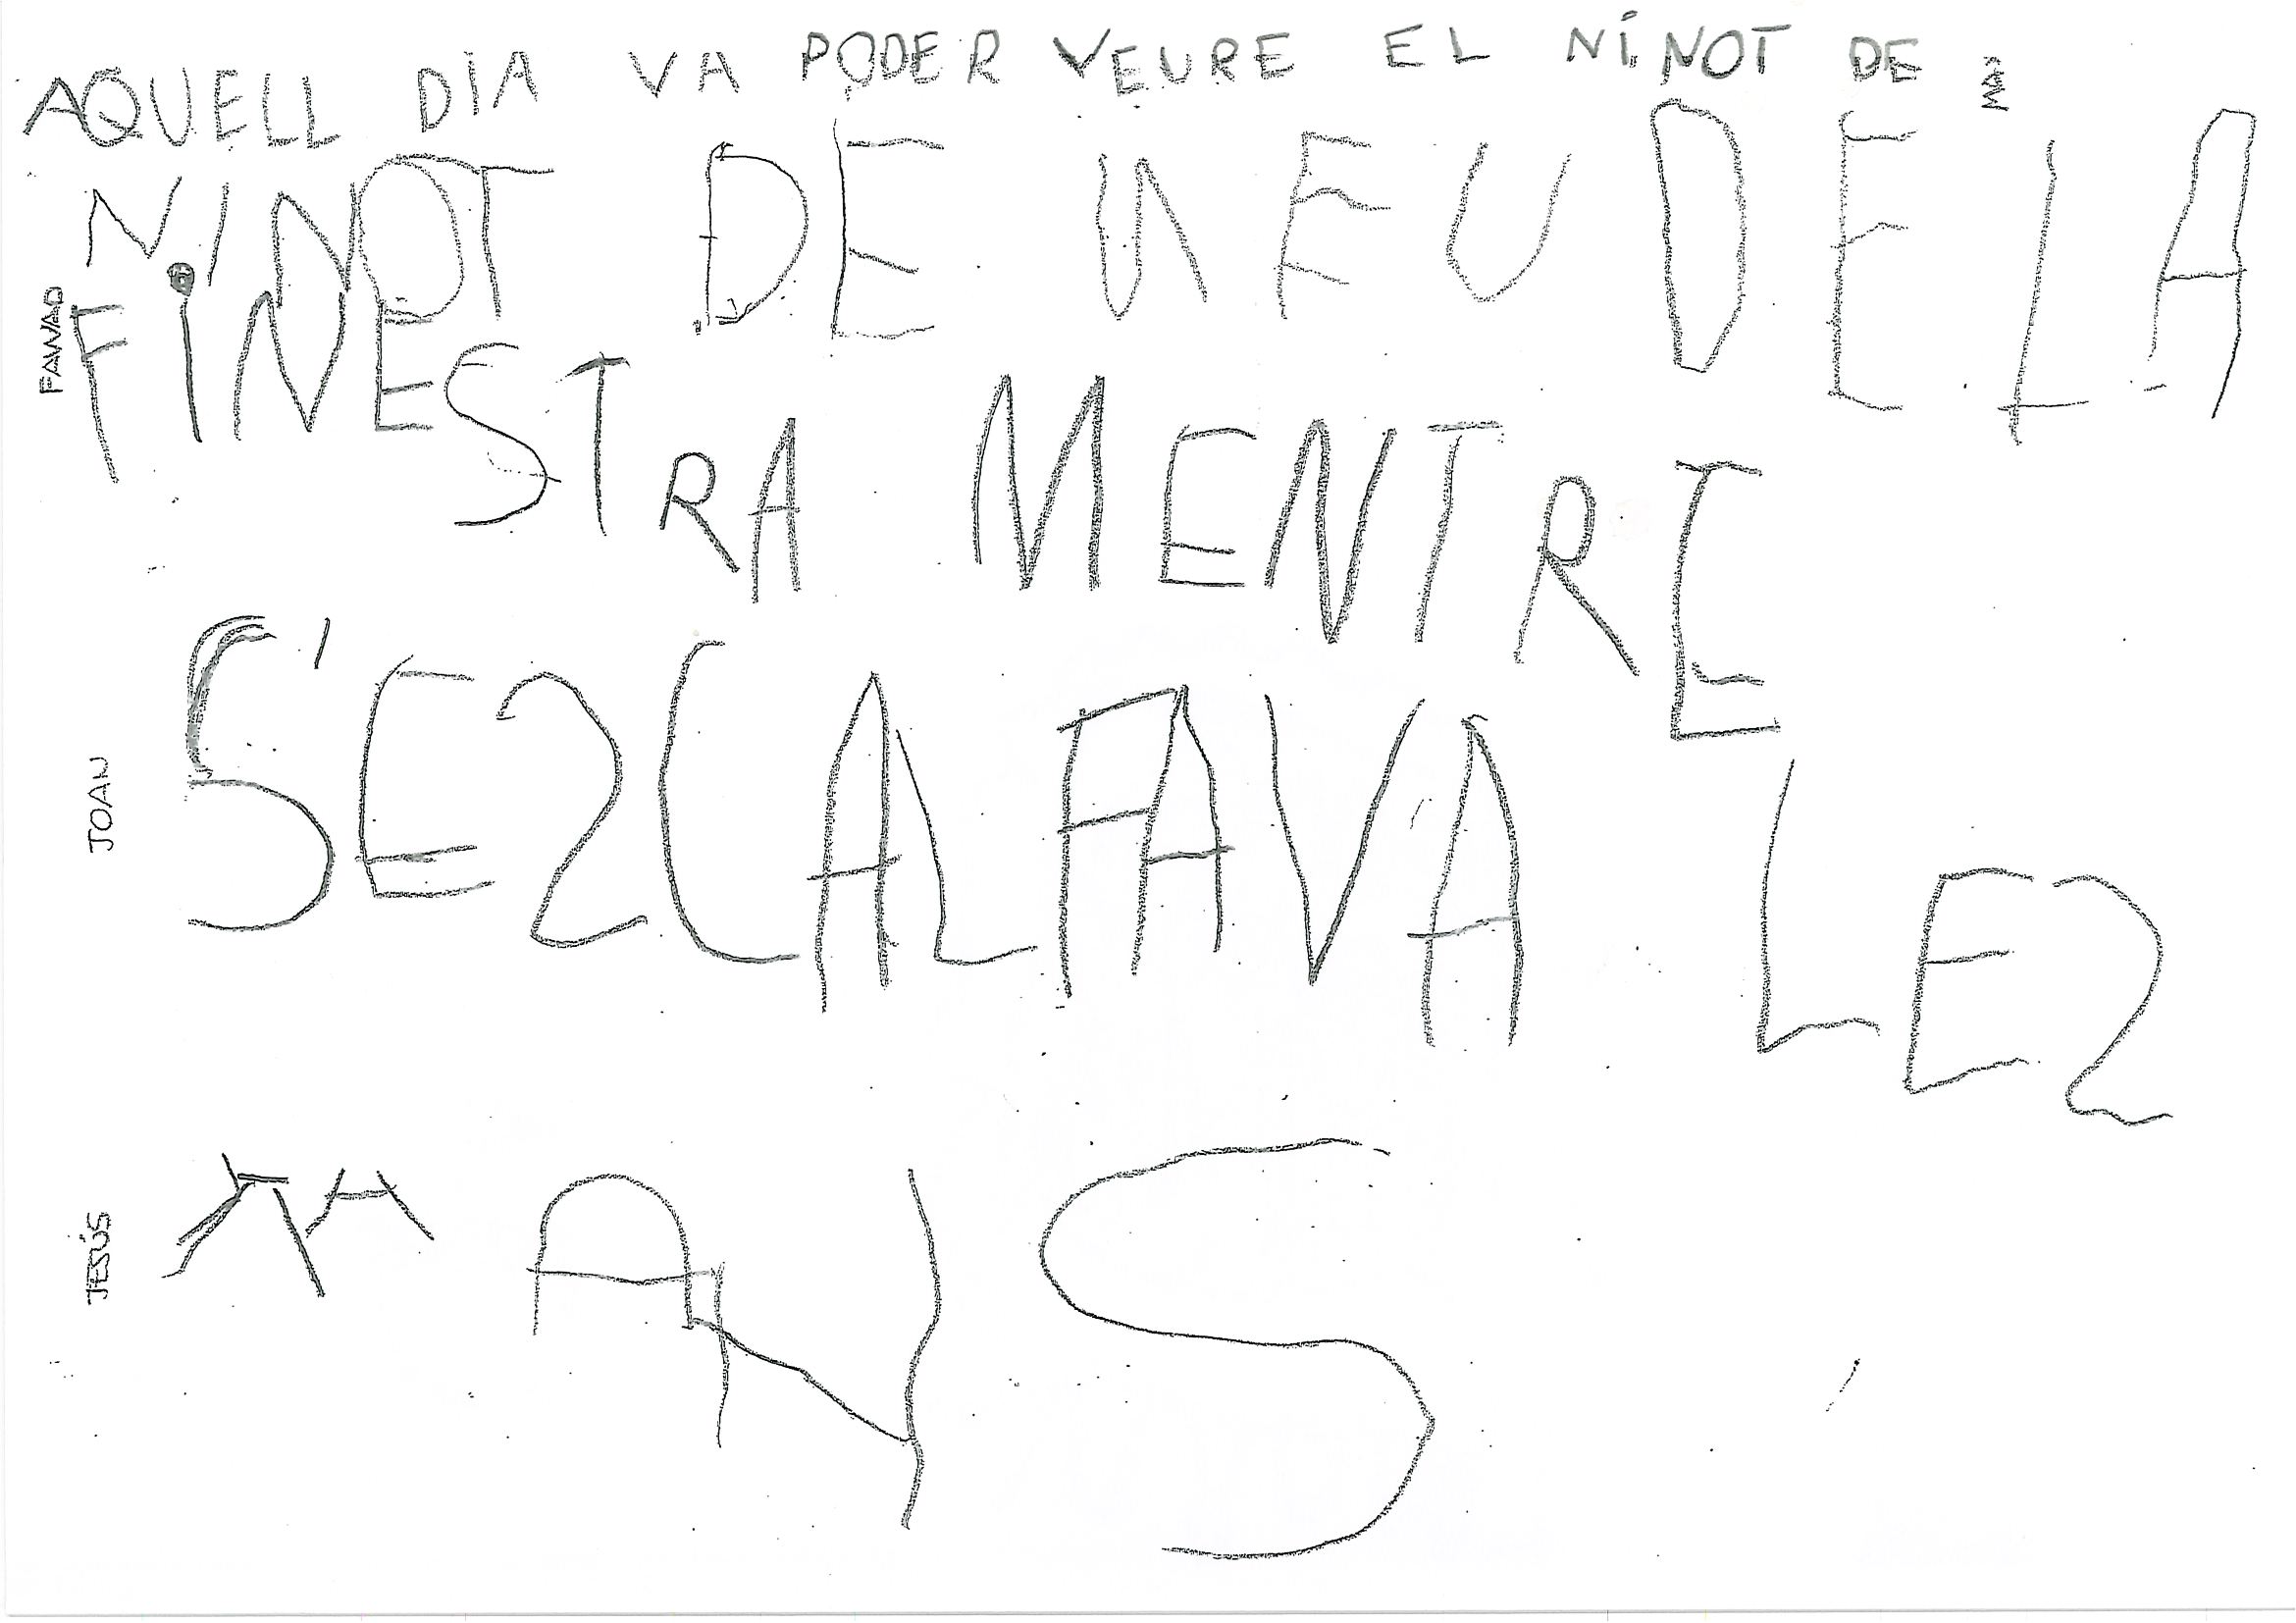 AQUELL DIA VA PODER VEURE EL NINOT DE
NINOT DE NEU DE LA
FAWAD
FINESTRA MENTRE
JOAN
S'ESCALFAVA LES
JESÚS
MANS